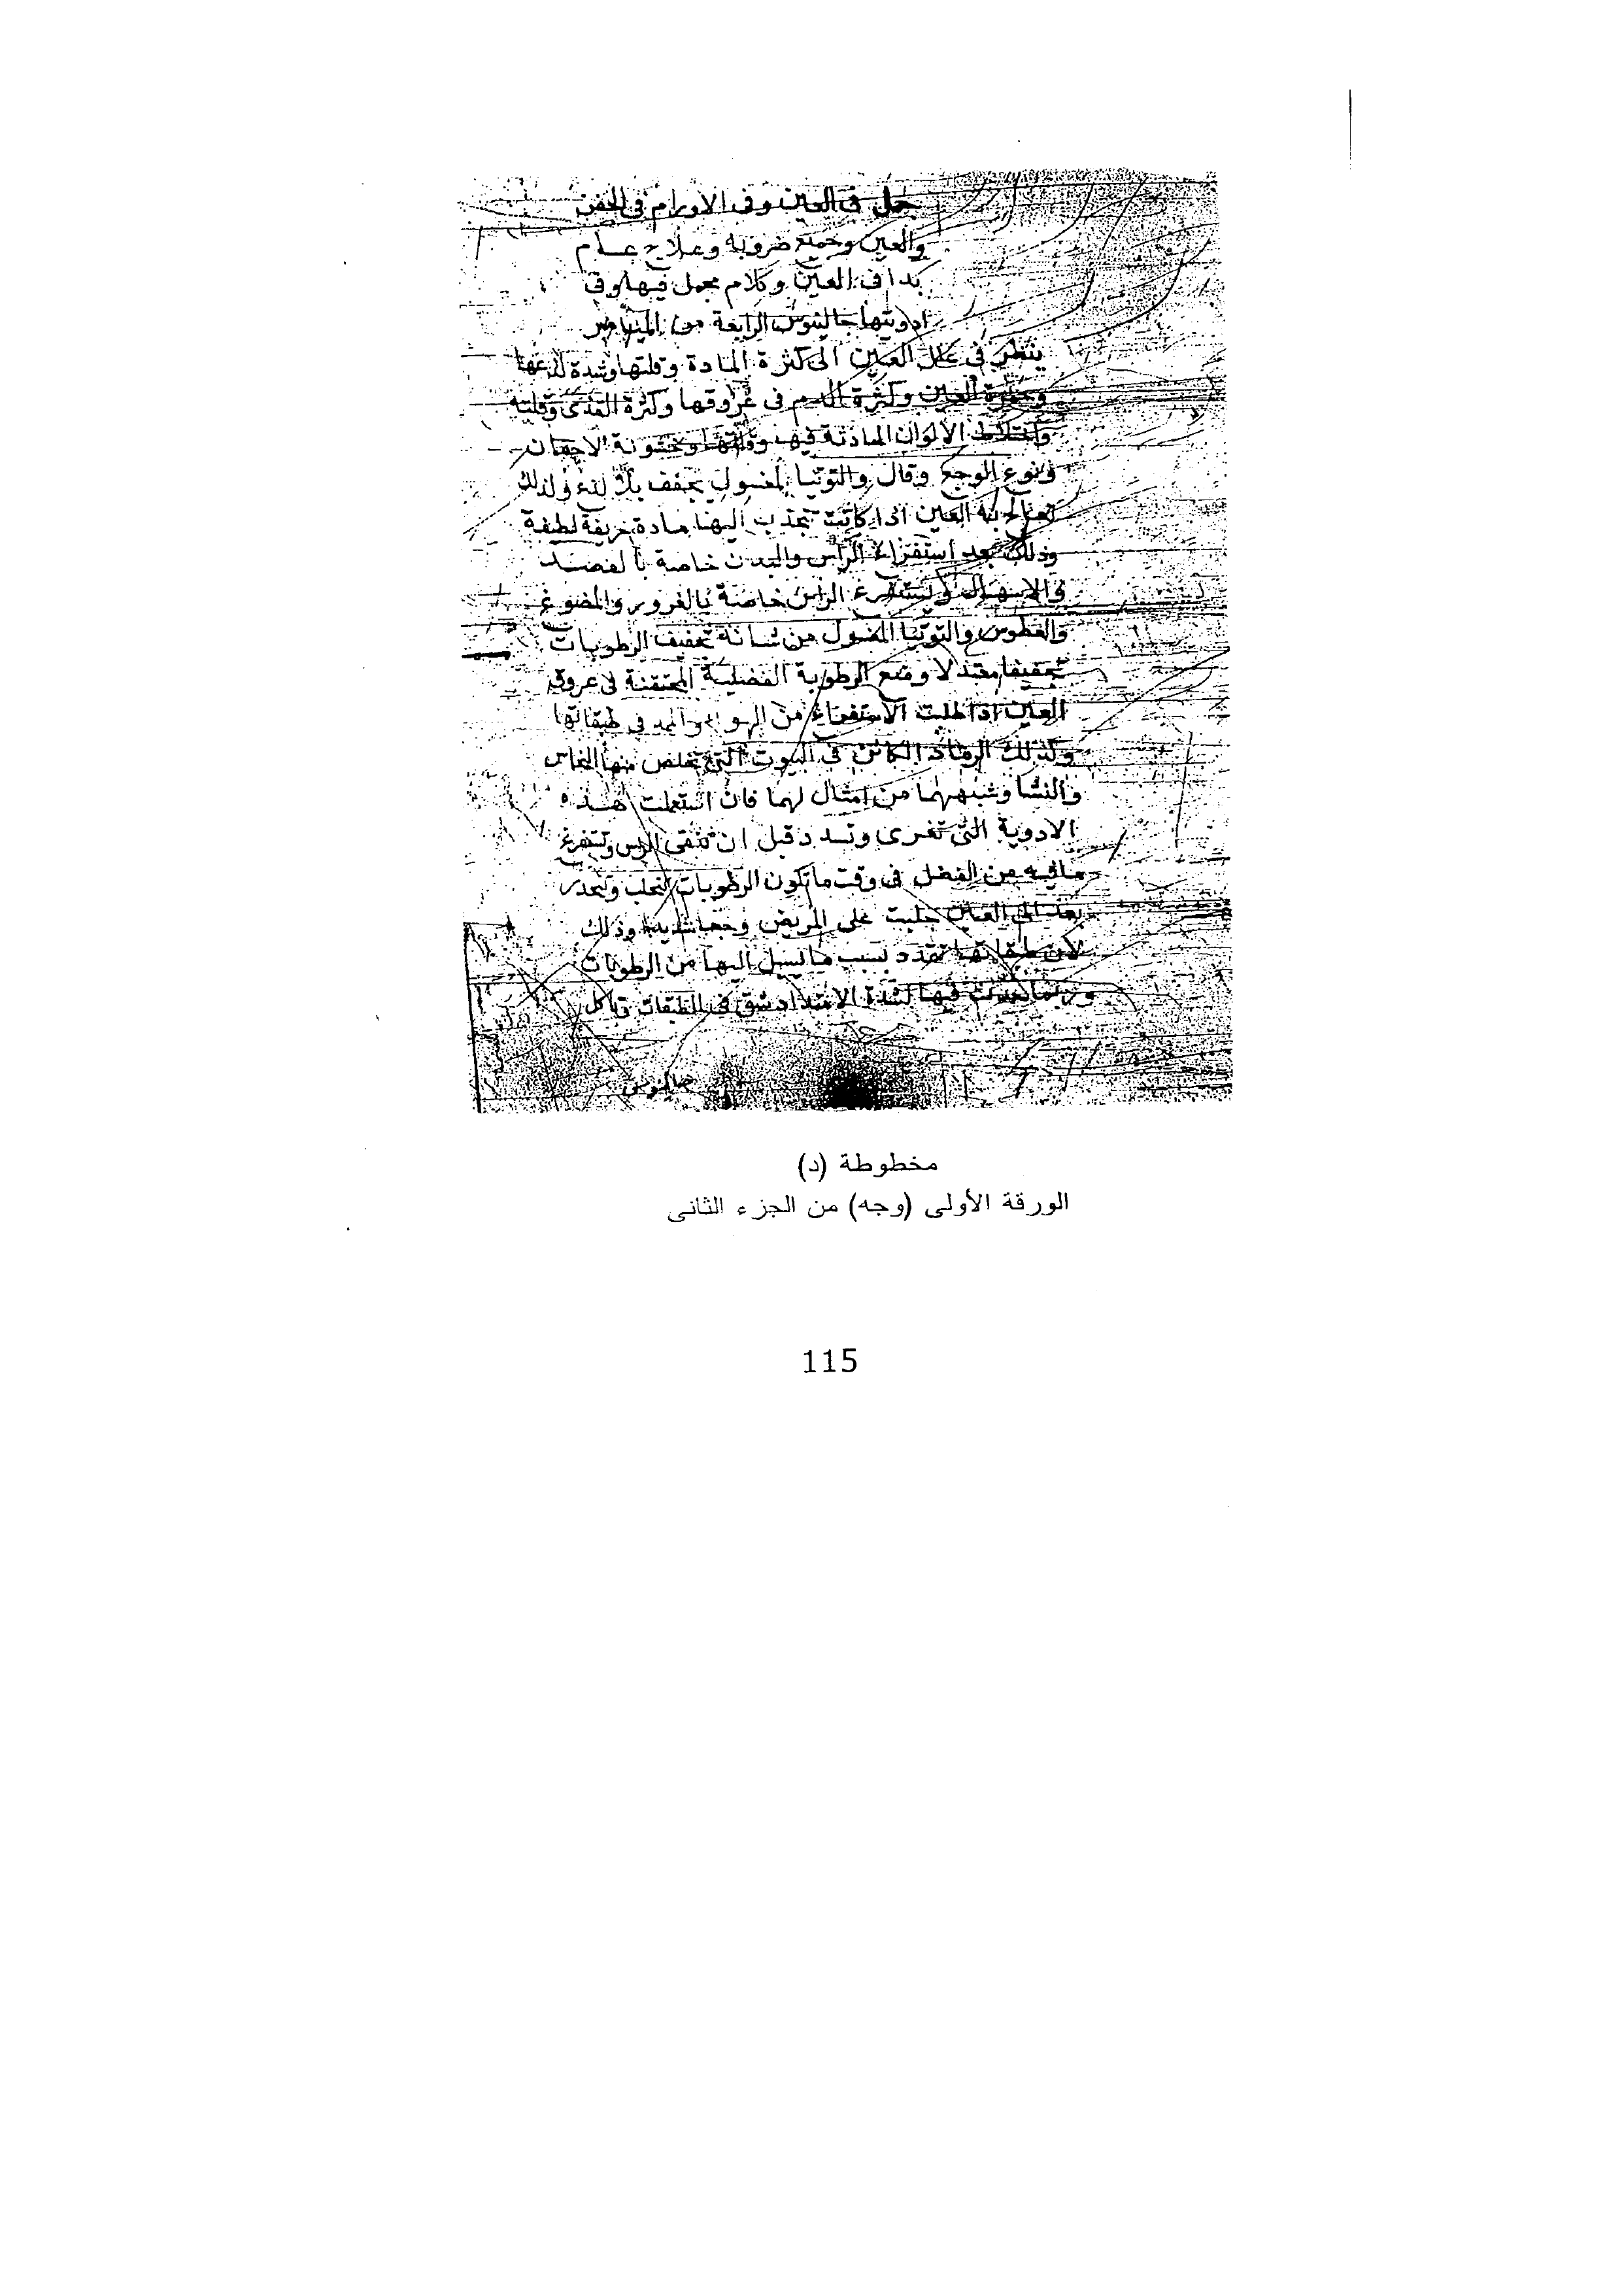 جمل فى العين وفى الاورام فى الجفن
والعين وجميع ضروبه وعلاج عام
فى العين وكلام مجمل فيها وفى
ادويتها جالينوس الرابعة من الميامر
ينظر فى علل العين الى كثرة المادة وقلتها وشدة لذعها
وحمرة العين وكثرة الدم فى عروقها وكثرة القذى وقلته
الالوان الحادثة فيها وخشونة الاجفان
ونوع الوجع وقال والتوتيا المغسول يجفف بلا لذع ولذلك
تعالج به العين اذا كانت تنجذب اليها مادة حريفة لطيفة
وذلك بعد استفراغ الراس والبدن خاصة بالفصد
والاسهال ويستفرغ الراس خاصة بالغرور والمضوغ
والعطوس والتوتيا المغسول من شانه تجفيف الرطوبات
تجفيفا معتدلا ومنع الرطوبة الفضلية المحتقنة فى عروق
العين اذا طلبت الاستفراغ من فى طبقاتها
وكذلك الرماد الكائن فى البيوت التى تخلص منها النحاس
والنشا وشبههما من امثال لهما فان استعملت هذه
الادوية التى تغرى وتسدد قبل ان تنقى الراس وتستفرغ
ما فيه من الفضل فى وقت ما تكون الرطوبات تتحلب وتنحدر
بعد الى العين جلبت على المريض وجعا شديدا وذلك
لان طبقاتها تمدد بسبب ما يسيل اليها من الرطوبات
وربما حدث فيها لشدة الامتداد شق فى الطبقات وتاكل
جالينوس
مخطوطة (د)
الورقة الأولى (وجه) من الجزء الثانى
115